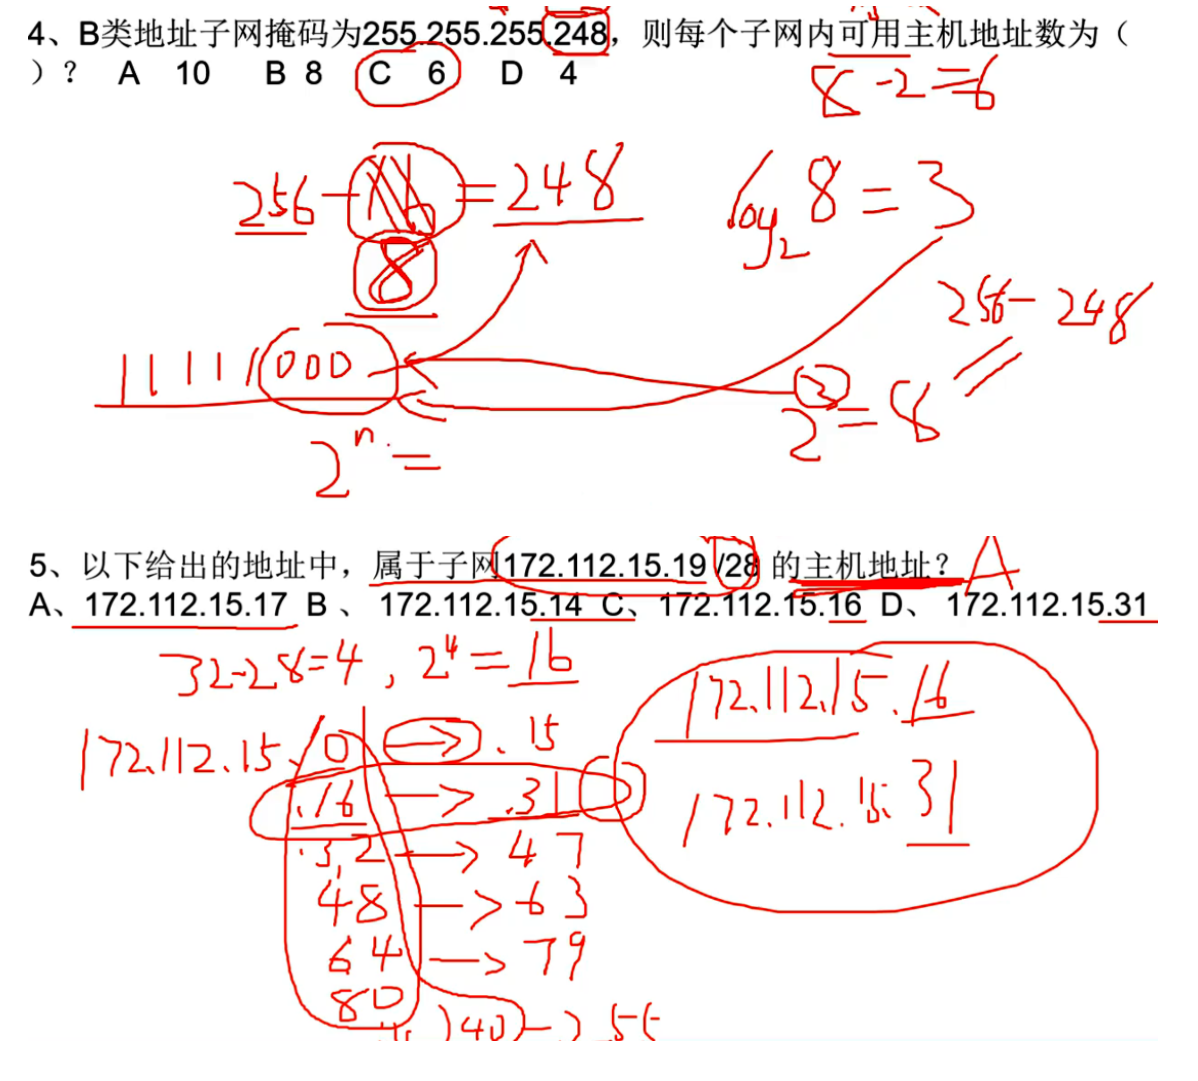 4、B类地址子网掩码为255.255.255.248，则每个子网内可用主机地址数为（
）？ A 10 B 8 C 6 D 4
8-2=6
256- =248
log₂8=3
8
256-248
11111000
2³=8
2ⁿ=
5、以下给出的地址中，属于子网172.112.15.19 /28 的主机地址？ A
A、172.112.15.17 B 、 172.112.15.14 C、 172.112.15.16 D、 172.112.15.31
32-28=4，2⁴=16
172.112.15.16
172.112.15. 0 → .15
.16 → .31
172.112.15.31
.32 → 47
48 → 63
64 → 79
80
240 → 255